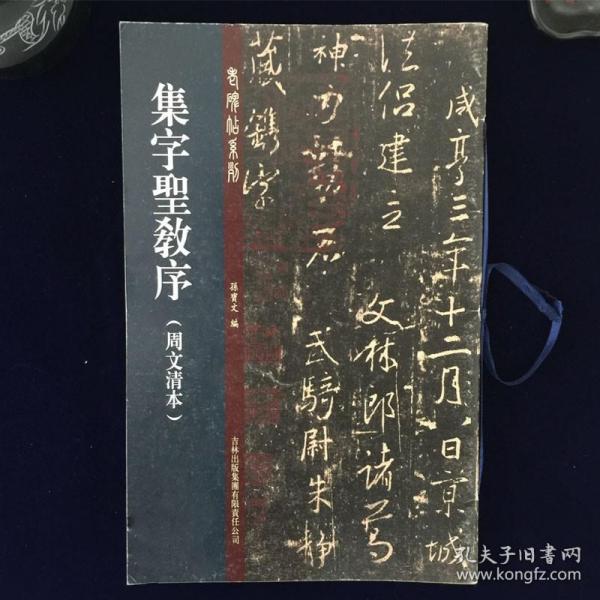 集字聖教序
(周文清本)
老碑帖系列
孫寶文 編
吉林出版集團有限責任公司
咸亨三年十二月八日京城
法侣建立 文林郎諸葛
神力勒石 武騎尉朱静
藏鐫字
孔夫子旧书网
www.kongfz.com